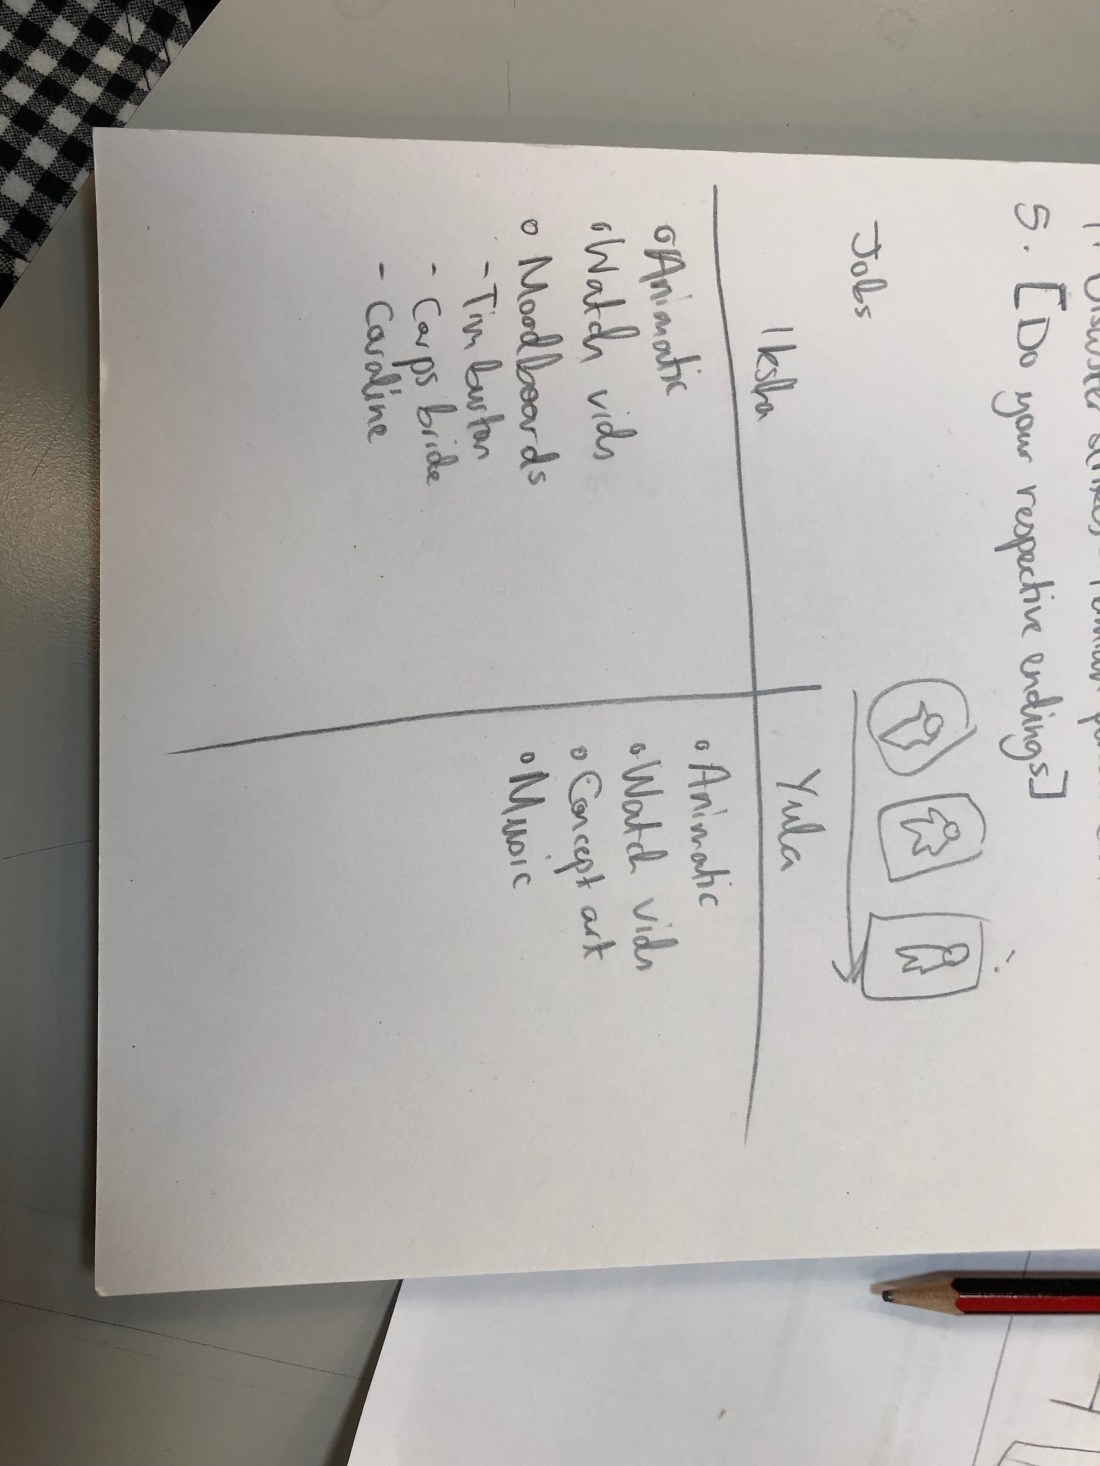 5. [Do your respective endings]
Jobs
Iksha
Yula
Animatic
Watch vids
Moodboards
- Tim burton
- Corps bride
- Coraline
Animatic
Watch vids
Concept art
Music